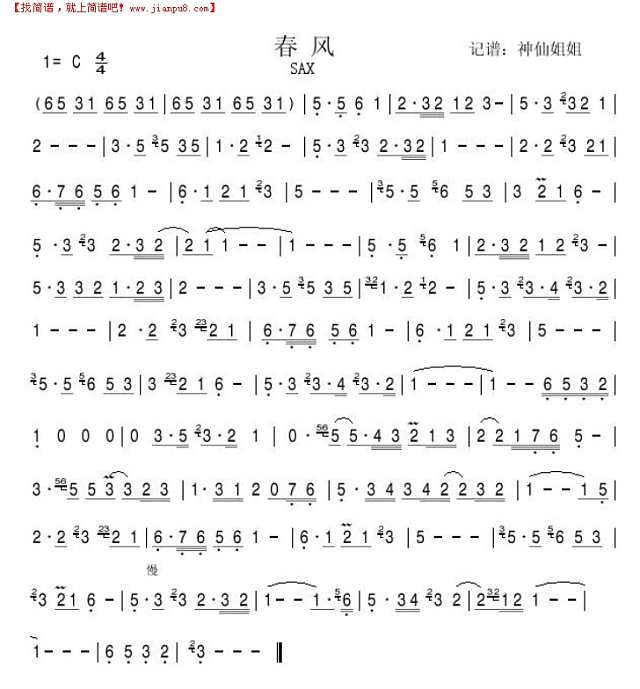 【找简谱，就上简谱吧! www.jianpu8.com】
春 风
1= C 4/4
SAX
记谱：神仙姐姐
(65 31 65 31|65 31 65 31)|5·5 6 1|2·32 12 3-|5·3 2321|
2---|3·5 3535|1·2 12-|5·3 23 2·32|1---|2·2 23 21|
6·76 56 1-|6·1 21 23|5---|35·5 56 53|3 21 6-|
5·3 23 2·32|2 1 1--|1---|5·5 56 1|2·32 12 23-|
5·3 32 1·23|2---|3·5 35 35|321·2 12-|5·3 23·4 23·2|
1---|2·2 23 2321|6·76 56 1-|6·1 21 23|5---|
35·5 56 53|3 2321 6-|5·3 23·4 23·2|1---|1--6532|
1 0 0 0|0 3·5 23·2 1|0·565 5·43 213|22 176 5-|
3·565 53 323|1·3 12 076|5·34 342 232|1--15|
2·2 23 2321|6·76 56 1-|6·1 21 23|5---|35·5 56 53|
慢
23 21 6-|5·3 23 2·32|1--1·56|5·34 23 2|23212 1--|
1---|6 5 3 2|23---‖